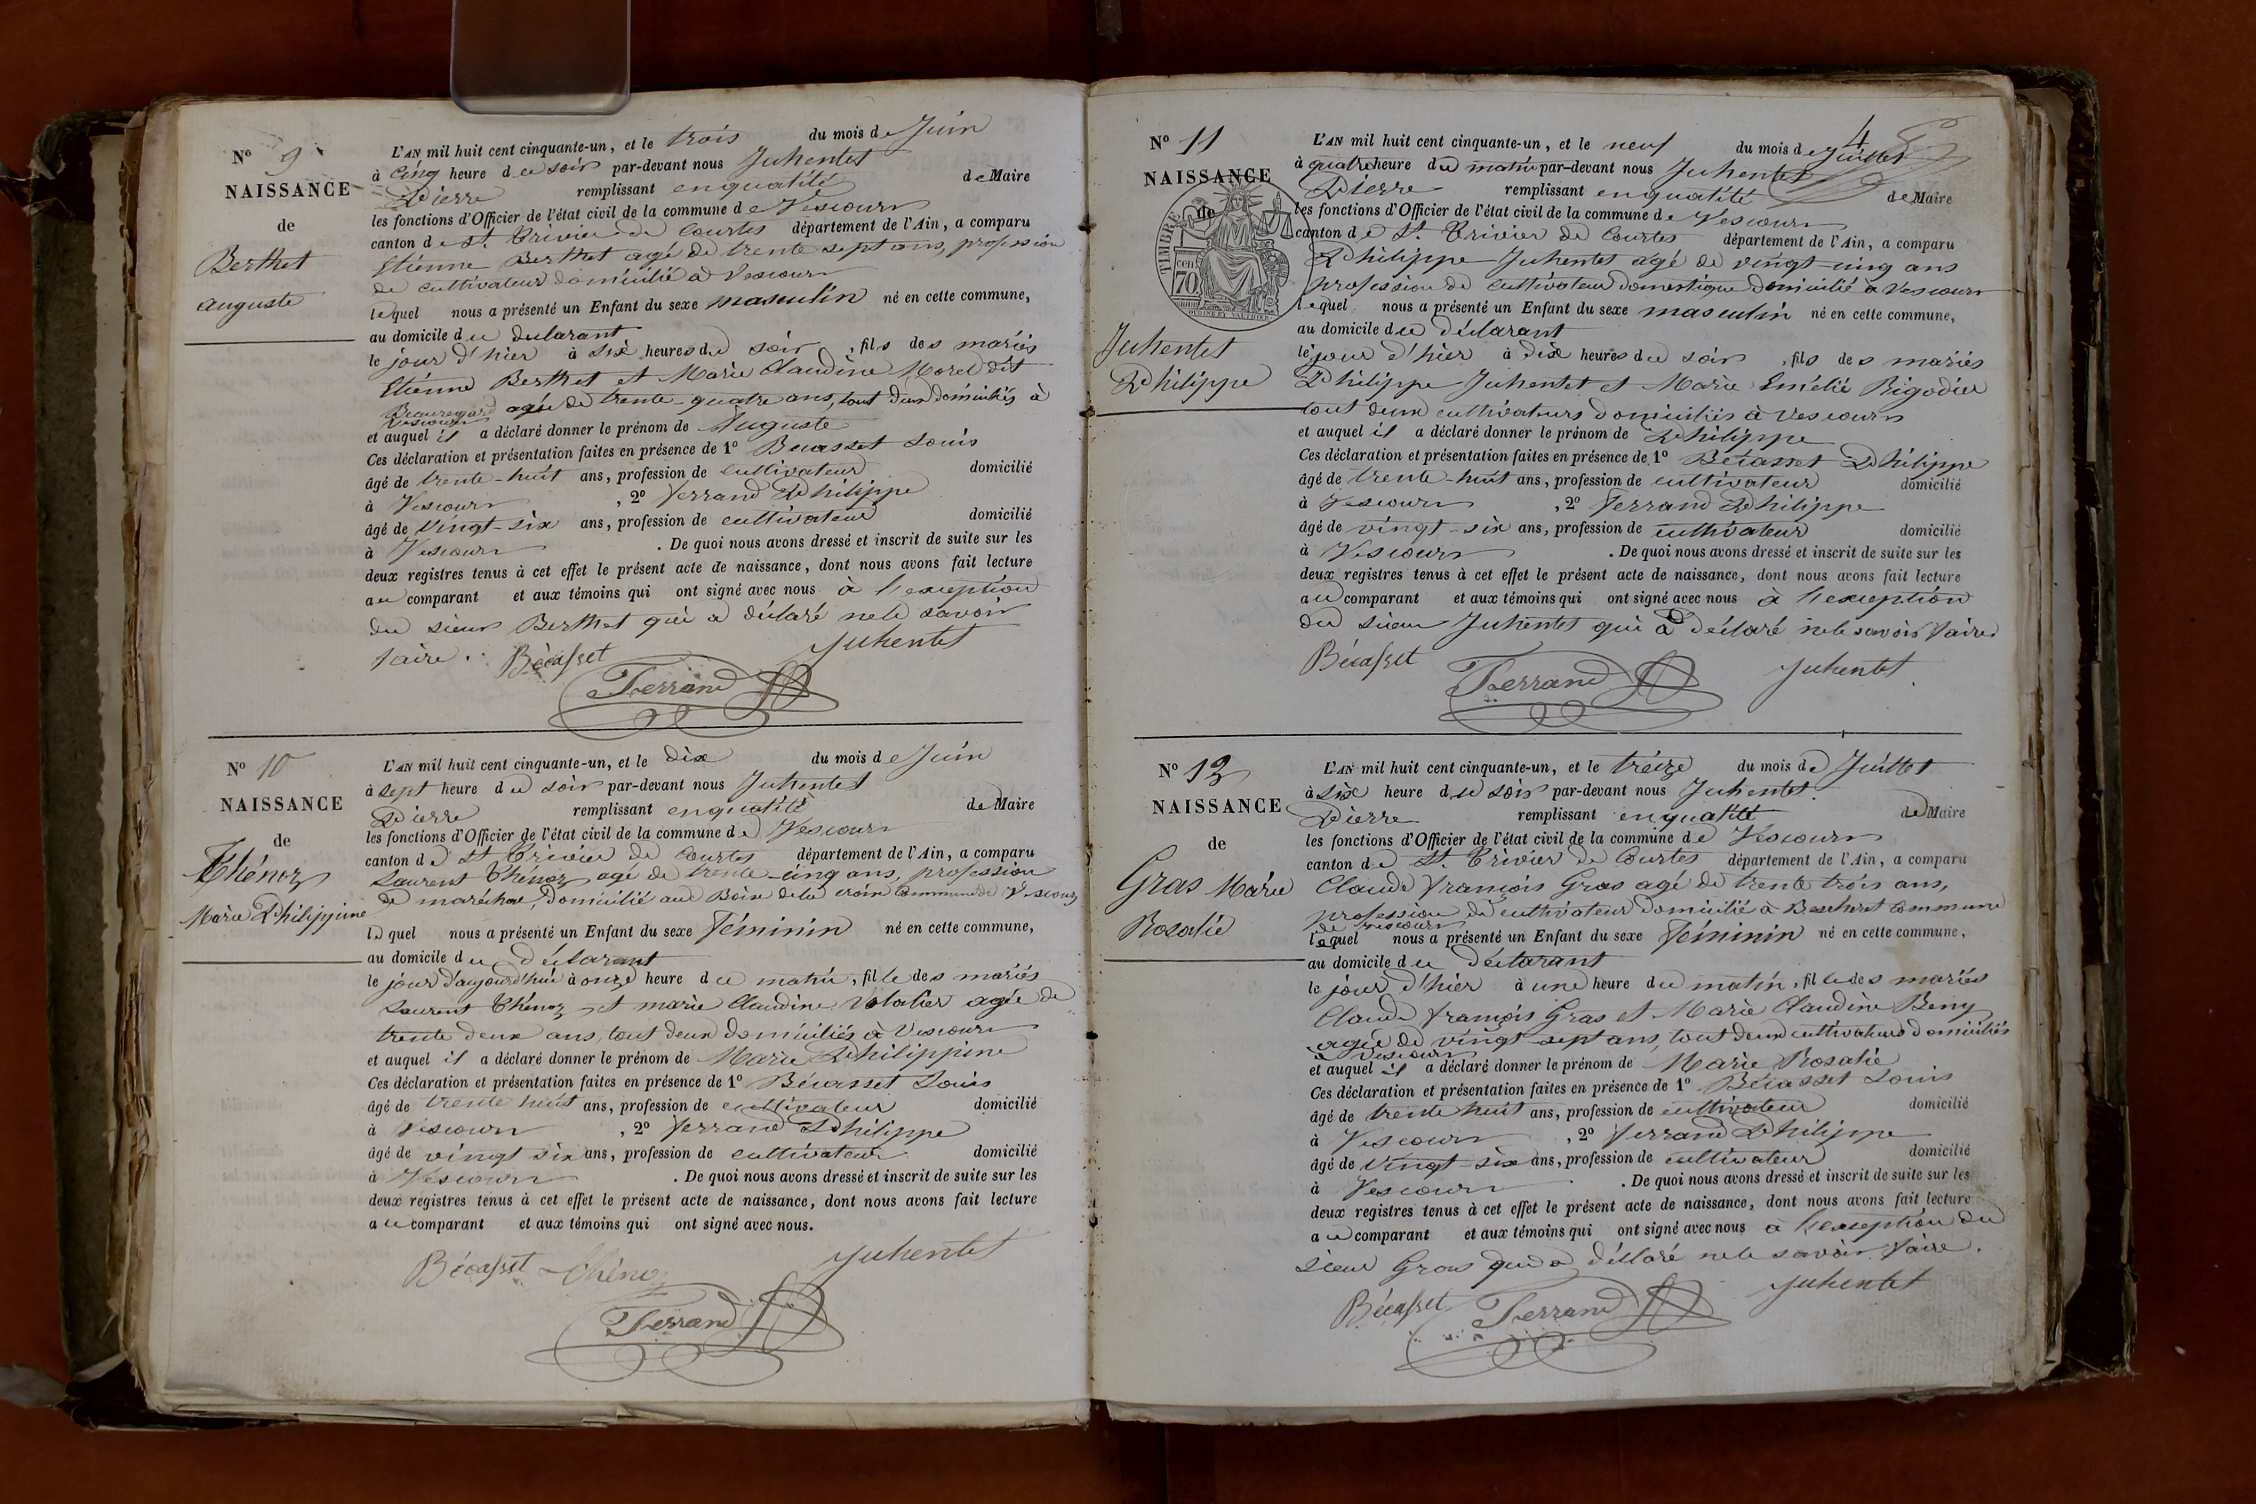 N° 9
NAISSANCE
de
Berthet
auguste
L'AN mil huit cent cinquante-un, et le trois du mois de Juin
à cinq heure du soir par-devant nous Juhentet
Pierre remplissant en qualité de Maire
les fonctions d'Officier de l'état civil de la commune de Vescours
canton de St. Trivier de Courtes département de l'Ain, a comparu
Etienne Berthet agé de trente sept ans, profession
de cultivateur domicilié à Vescours
lequel nous a présenté un Enfant du sexe masculin né en cette commune,
au domicile du declarant
le jour d'hier à six heures du soir, fils des mariés
Etienne Berthet et Marie Claudine Morel dit
Beauregard agée de trente-quatre ans, tout deux domiciliés à
Vescours
et auquel il a déclaré donner le prénom de Auguste
Ces déclaration et présentation faites en présence de 1° Bécasset Louis
âgé de trente-huit ans, profession de cultivateur domicilié
à Vescours, 2° Ferrand Philippe
âgé de vingt-six ans, profession de cultivateur domicilié
à Vescours. De quoi nous avons dressé et inscrit de suite sur les
deux registres tenus à cet effet le présent acte de naissance, dont nous avons fait lecture
au comparant et aux témoins qui ont signé avec nous à l'exception
du sieur Berthet qui a déclaré ne le savoir
faire. Bécasset Juhentet
Ferrand
N° 10
NAISSANCE
de
Thénoz
Marie Philippine
L'AN mil huit cent cinquante-un, et le dix du mois de Juin
à sept heure du soir par-devant nous Juhentet
Pierre remplissant en qualité de Maire
les fonctions d'Officier de l'état civil de la commune de Vescours
canton de St Trivier de Courtes département de l'Ain, a comparu
Laurent Thénoz agé de trente-cinq ans, profession
de maréchal, domicilié au Bois de la croix Commune de Vescours
le quel nous a présenté un Enfant du sexe féminin né en cette commune,
au domicile du déclarant
le jour d'aujourd'hui à onze heure du matin, fille des mariés
Laurent Thénoz et marie Claudine Volatier agée de
trente deux ans, tout deux domiciliés à Vescours
et auquel il a déclaré donner le prénom de Marie Philippine
Ces déclaration et présentation faites en présence de 1° Bécasset Louis
âgé de trente huit ans, profession de cultivateur domicilié
à Vescours, 2° Ferrand Philippe
âgé de vingt six ans, profession de cultivateur domicilié
à Vescours. De quoi nous avons dressé et inscrit de suite sur les
deux registres tenus à cet effet le présent acte de naissance, dont nous avons fait lecture
au comparant et aux témoins qui ont signé avec nous.
Bécasset Thénoz Juhentet
Ferrand
4
N° 11
NAISSANCE
de
TIMBRE
70 cen
Juhentet
Philippe
L'AN mil huit cent cinquante-un, et le neuf du mois de Juillet
à quatre heure du matin par-devant nous Juhentet
Pierre remplissant en qualité de Maire
les fonctions d'Officier de l'état civil de la commune de Vescours
canton de St. Trivier de Courtes département de l'Ain, a comparu
Philippe Juhentet agé de vingt-cinq ans
profession de cultivateur domestique domicilié à Vescours
lequel nous a présenté un Enfant du sexe masculin né en cette commune,
au domicile du déclarant
le jour d'hier à dix heures du soir, fils des mariés
Philippe Juhentet et Marie Emélie Bigodier
tout deux cultivateurs domiciliés à Vescours
et auquel il a déclaré donner le prénom de Philippe
Ces déclaration et présentation faites en présence de 1° Bécasset Philippe
âgé de trente-huit ans, profession de cultivateur domicilié
à Vescours, 2° Ferrand Philippe
âgé de vingt-six ans, profession de cultivateur domicilié
à Vescours. De quoi nous avons dressé et inscrit de suite sur les
deux registres tenus à cet effet le présent acte de naissance, dont nous avons fait lecture
au comparant et aux témoins qui ont signé avec nous à l'exception
du sieur Juhentet qui a déclaré ne le savoir faire
Bécasset Ferrand Juhentet
N° 12
NAISSANCE
de
Gras Marie
Rosalie
L'AN mil huit cent cinquante-un, et le treize du mois de Juillet
à six heure du soir par-devant nous Juhentet
Pierre remplissant en qualité de Maire
les fonctions d'Officier de l'état civil de la commune de Vescours
canton de St. Trivier de Courtes département de l'Ain, a comparu
Claude françois Gras agé de trente trois ans,
profession de cultivateur domicilié à commune
de Vescours
lequel nous a présenté un Enfant du sexe féminin né en cette commune,
au domicile du déclarant
le jour d'hier à une heure du matin, fille des mariés
Claude françois Gras et Marie Claudine Beny
agée de vingt-sept ans, tout deux cultivateurs domiciliés
à Vescours
et auquel il a déclaré donner le prénom de Marie Rosalie
Ces déclaration et présentation faites en présence de 1° Bécasset Louis
âgé de trente huit ans, profession de cultivateur domicilié
à Vescours, 2° Ferrand Philippe
âgé de vingt-six ans, profession de cultivateur domicilié
à Vescours. De quoi nous avons dressé et inscrit de suite sur les
deux registres tenus à cet effet le présent acte de naissance, dont nous avons fait lecture
au comparant et aux témoins qui ont signé avec nous à l'exception du
sieur Gras qui a déclaré ne le savoir faire.
Bécasset Ferrand Juhentet